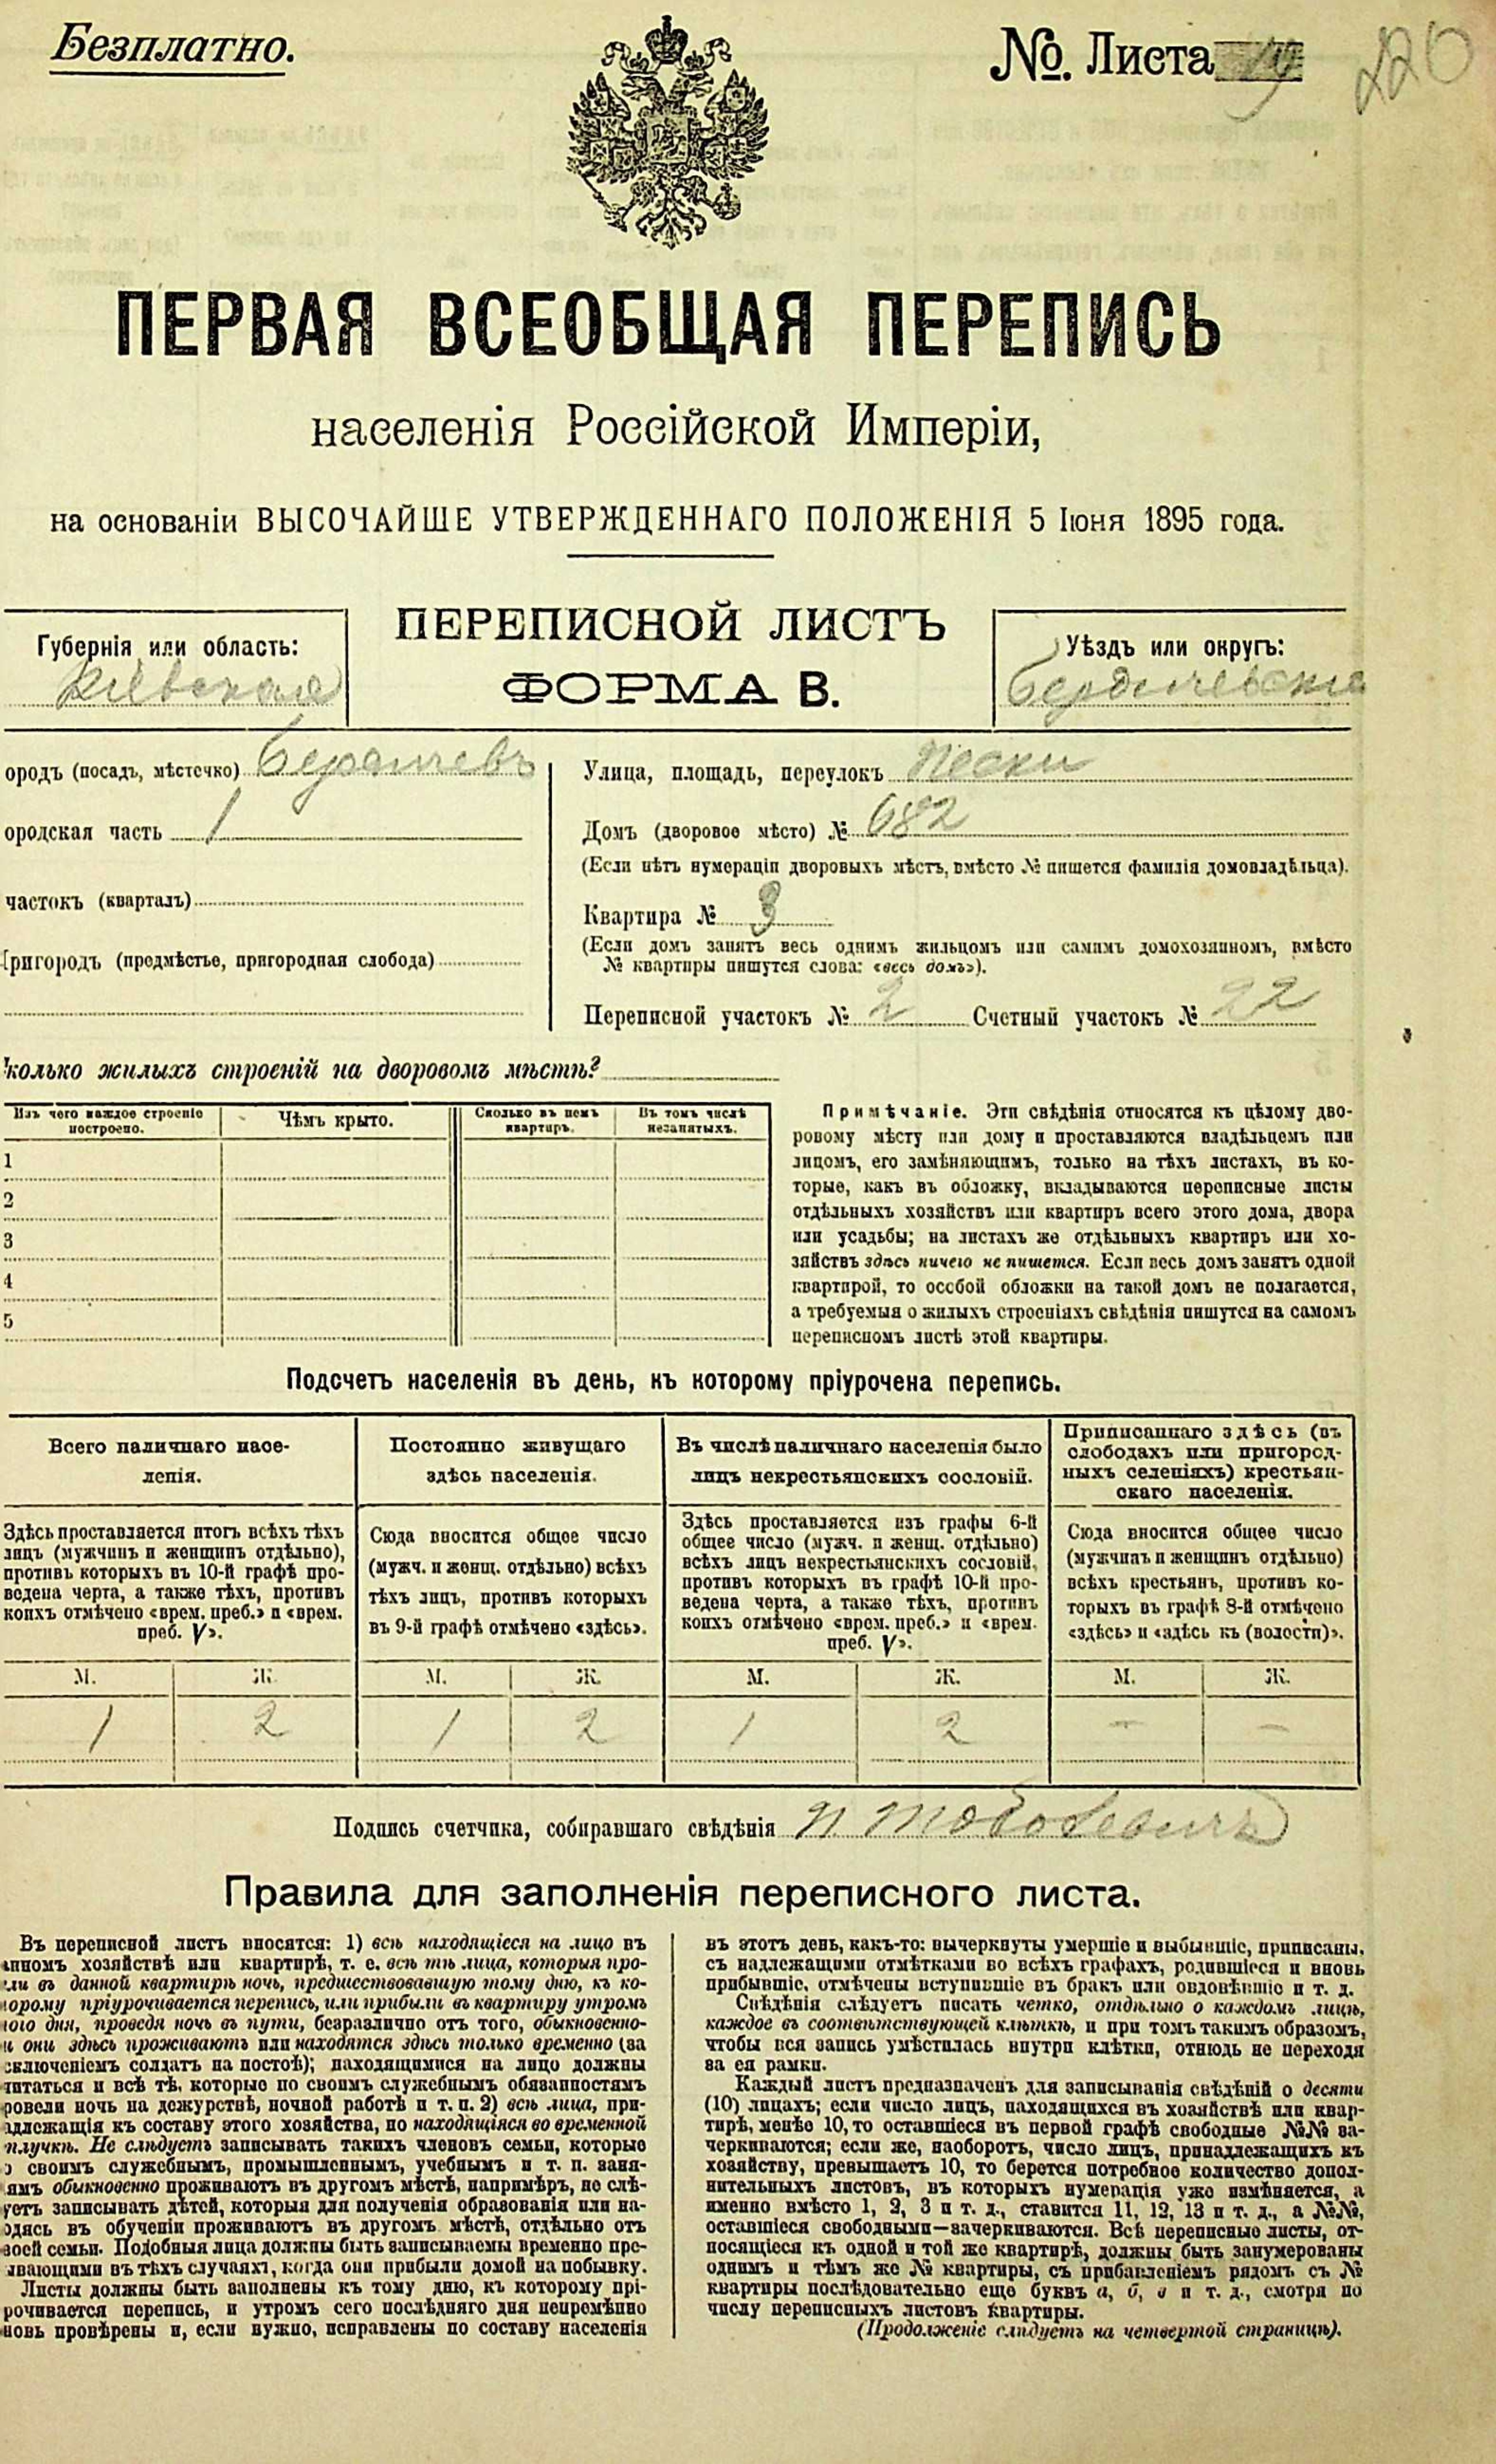 Безплатно.
№. Листа
220
ПЕРВАЯ ВСЕОБЩАЯ ПЕРЕПИСЬ
населенія Россійской Имперіи,
на основаніи ВЫСОЧАЙШЕ УТВЕРЖДЕННАГО ПОЛОЖЕНІЯ 5 Іюня 1895 года.
ПЕРЕПИСНОЙ ЛИСТЪ
ФОРМА В.
Губернія или область:
Кіевская
Уѣздъ или округъ:
Бердичевскій
ородъ (посадъ, мѣстечко) Бердичевъ
ородская часть 1
частокъ (кварталъ)
Пригородъ (предмѣстье, пригородная слобода)
Улица, площадь, переулокъ Пески
Домъ (дворовое мѣсто) № 682
(Если нѣтъ нумераціи дворовыхъ мѣстъ, вмѣсто № пишется фамилія домовладѣльца).
Квартира № 3
(Если домъ занятъ весь однимъ жильцомъ или самимъ домохозяиномъ, вмѣсто
№ квартиры пишутся слова: «весь домъ»).
Переписной участокъ № 2 Счетный участокъ № 22
колько жилыхъ строеній на дворовомъ мѣстѣ?
Изъ чего каждое строеніе
построено.
Чѣмъ крыто.
Сколько въ немъ
квартиръ.
Въ томъ числѣ
незанятыхъ.
1
2
3
4
5
Примѣчаніе. Эти свѣдѣнія относятся къ цѣлому дво-
ровому мѣсту или дому и проставляются владѣльцемъ или
лицомъ, его замѣняющимъ, только на тѣхъ листахъ, въ ко-
торые, какъ въ обложку, вкладываются переписные листы
отдѣльныхъ хозяйствъ или квартиръ всего этого дома, двора
или усадьбы; на листахъ же отдѣльныхъ квартиръ или хо-
зяйствъ здѣсь ничего не пишется. Если весь домъ занятъ одной
квартирой, то особой обложки на такой домъ не полагается,
а требуемыя о жилыхъ строеніяхъ свѣдѣнія пишутся на самомъ
переписномъ листѣ этой квартиры.
Подсчетъ населенія въ день, къ которому пріурочена перепись.
Всего наличнаго насе-
ленія.
Постоянно живущаго
здѣсь населенія.
Въ числѣ наличнаго населенія было
лицъ некрестьянскихъ сословій.
Приписаннаго здѣсь (въ
слободахъ или пригород-
ныхъ селеніяхъ) крестьян-
скаго населенія.
Здѣсь проставляется итогъ всѣхъ тѣхъ
лицъ (мужчинъ и женщинъ отдѣльно),
противъ которыхъ въ 10-й графѣ про-
ведена черта, а также тѣхъ, противъ
коихъ отмѣчено «врем. преб.» и «врем.
преб. V».
Сюда вносится общее число
(мужч. и женщ. отдѣльно) всѣхъ
тѣхъ лицъ, противъ которыхъ
въ 9-й графѣ отмѣчено «здѣсь».
Здѣсь проставляется изъ графы 6-й
общее число (мужч. и женщ. отдѣльно)
всѣхъ лицъ некрестьянскихъ сословій,
противъ которыхъ въ графѣ 10-й про-
ведена черта, а также тѣхъ, противъ
коихъ отмѣчено «врем. преб.» и «врем.
преб. V».
Сюда вносится общее число
(мужчинъ и женщинъ отдѣльно)
всѣхъ крестьянъ, противъ ко-
торыхъ въ графѣ 8-й отмѣчено
«здѣсь» и «здѣсь къ (волости)».
М. Ж. М. Ж. М. Ж. М. Ж.
1 2 1 2 1 2 — —
Подпись счетчика, собиравшаго свѣдѣнія
Правила для заполненія переписного листа.
Въ переписной листъ вносятся: 1) всѣ находящіеся на лицо въ
анномъ хозяйствѣ или квартирѣ, т. е. всѣ тѣ лица, которыя про-
ли въ данной квартирѣ ночь, предшествовавшую тому дню, къ ко-
орому пріурочивается перепись, или прибыли въ квартиру утромъ
ого дня, проведя ночь въ пути, безразлично отъ того, обыкновенно-
и они здѣсь проживаютъ или находятся здѣсь только временно (за
сключеніемъ солдатъ на постоѣ); находящимися на лицо должны
читаться и всѣ тѣ, которые по своимъ служебнымъ обязанностямъ
ровели ночь на дежурствѣ, ночной работѣ и т. п. 2) всѣ лица, при-
адлежащія къ составу этого хозяйства, но находящіяся во временной
тлучкѣ. Не слѣдуетъ записывать такихъ членовъ семьи, которые
о своимъ служебнымъ, промышленнымъ, учебнымъ и т. п. заня-
ямъ обыкновенно проживаютъ въ другомъ мѣстѣ, напримѣръ, не слѣ-
уетъ записывать дѣтей, которыя для полученія образованія или на-
одясь въ обученіи проживаютъ въ другомъ мѣстѣ, отдѣльно отъ
воей семьи. Подобныя лица должны быть записываемы временно пре-
ывающими въ тѣхъ случаяхъ, когда они прибыли домой на побывку.
Листы должны быть заполнены къ тому дню, къ которому прі-
рочивается перепись, и утромъ сего послѣдняго дня непремѣнно
новь провѣрены и, если нужно, исправлены по составу населенія
въ этотъ день, какъ-то: вычеркнуты умершіе и выбывшіе, приписаны,
съ надлежащими отмѣтками во всѣхъ графахъ, родившіеся и вновь
прибывшіе, отмѣчены вступившіе въ бракъ или овдовѣвшіе и т. д.
Свѣдѣнія слѣдуетъ писать четко, отдѣльно о каждомъ лицѣ,
каждое въ соотвѣтствующей клѣткѣ, и при томъ такимъ образомъ,
чтобы вся запись умѣстилась внутри клѣтки, отнюдь не переходя
за ея рамки.
Каждый листъ предназначенъ для записыванія свѣдѣній о десяти
(10) лицахъ; если число лицъ, находящихся въ хозяйствѣ или квар-
тирѣ, менѣе 10, то оставшіеся въ первой графѣ свободные №№ за-
черкиваются; если же, наоборотъ, число лицъ, принадлежащихъ къ
хозяйству, превышаетъ 10, то берется потребное количество допол-
нительныхъ листовъ, въ которыхъ нумерація уже измѣняется, а
именно вмѣсто 1, 2, 3 и т. д., ставится 11, 12, 13 и т. д., а №№,
оставшіеся свободными—зачеркиваются. Всѣ переписные листы, от-
носящіеся къ одной и той же квартирѣ, должны быть занумерованы
однимъ и тѣмъ же № квартиры, съ прибавленіемъ рядомъ съ №
квартиры послѣдовательно еще буквъ а, б, в и т. д., смотря по
числу переписныхъ листовъ квартиры.
(Продолженіе слѣдуетъ на четвертой страницѣ).